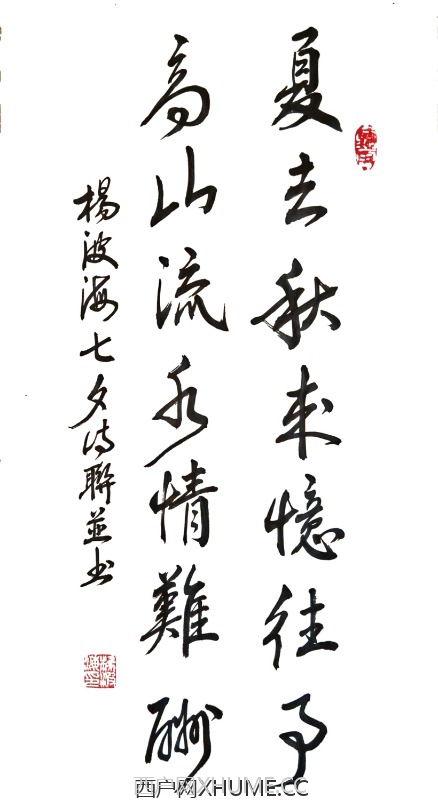 夏去秋来憶往事
高山流水情難酬
楊波海七夕诗聯並书
西户网XHUME.CC